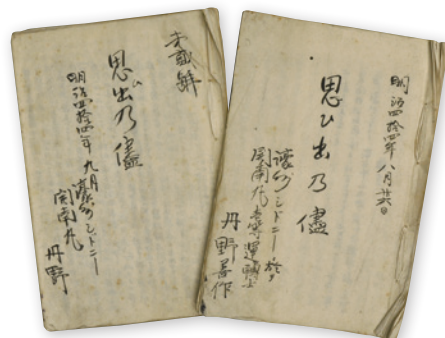 明治四拾四年八月廿六日
思ひ出乃儘
濠州シドニーニ於テ
開南丸壱等運轉士
丹野善作
思ひ出乃儘
明治四拾四年九月
濠州シドニー
開南丸
丹野